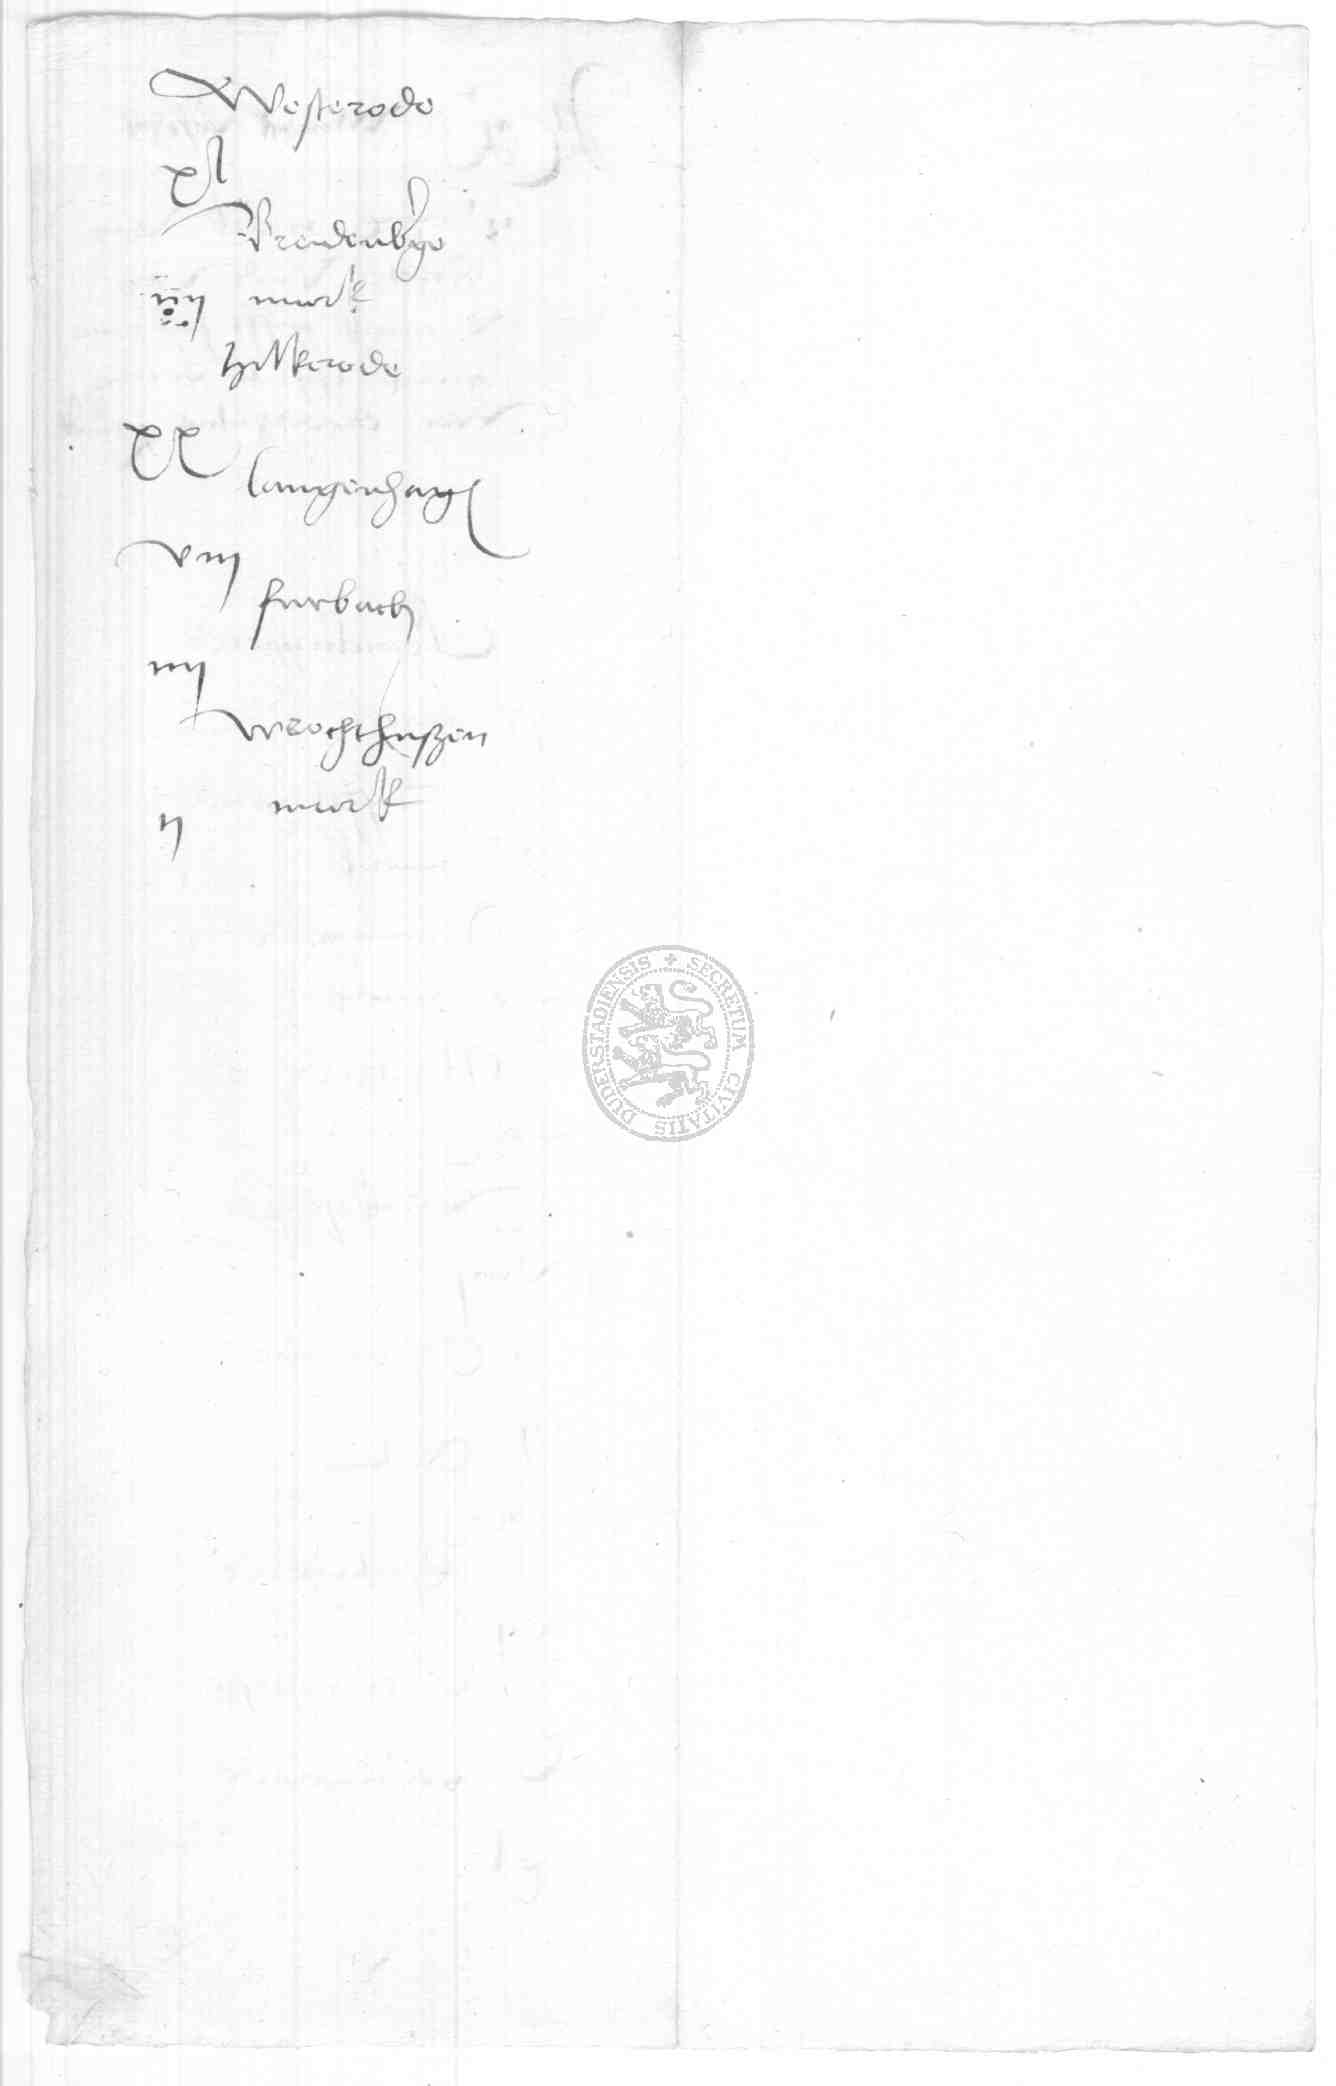 Westerode
xl
Breidenb'ge
iiij marck
hilkerode
xx
langenhag
viij
furbach
iiij
wrochthußen
ij marck
SECRETUM CIVITATIS DUDERSTADIENSIS